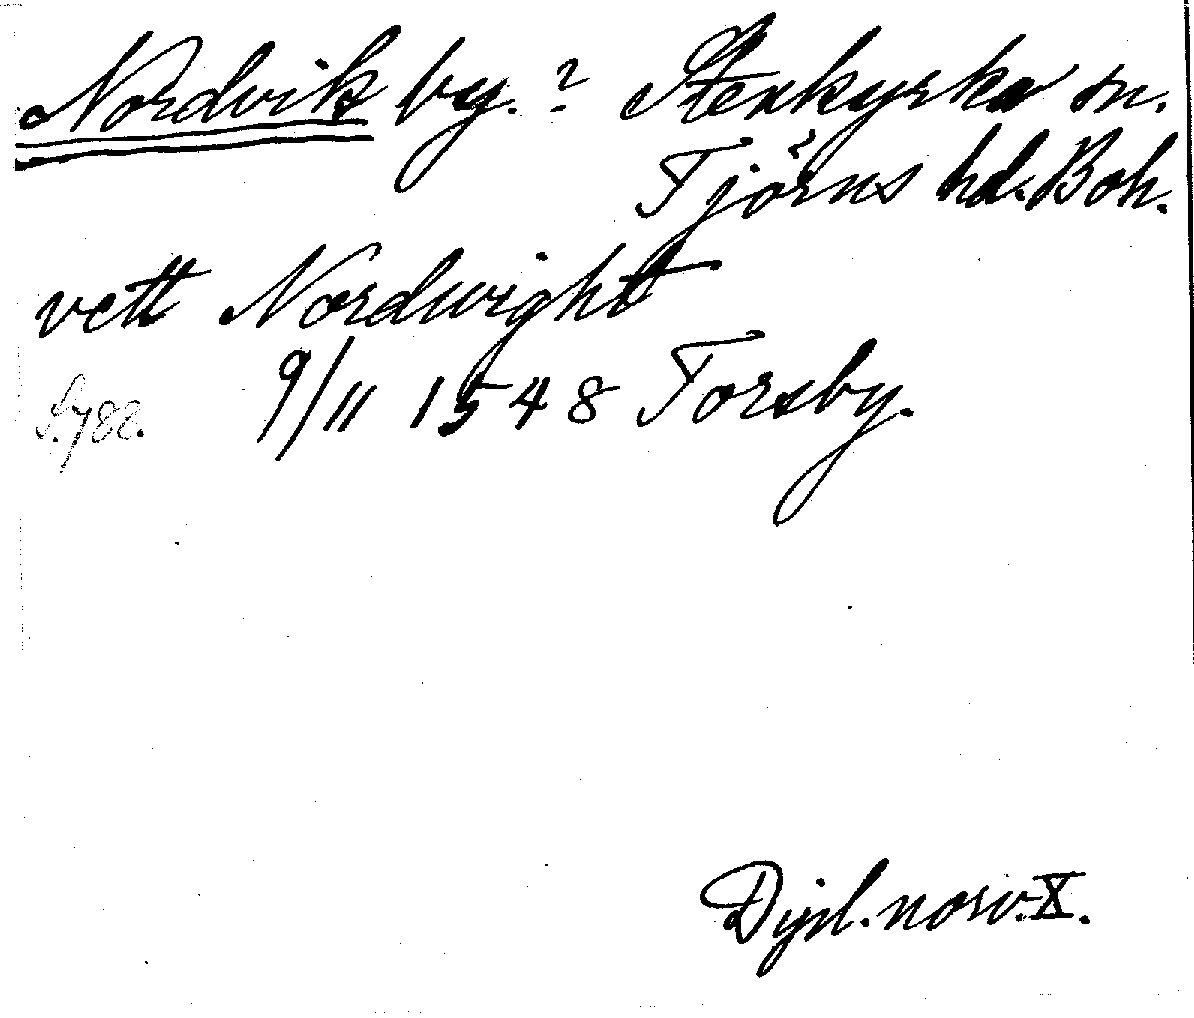 Nordvik by. ? Stenkyrka sn.
Tjörns hd. Boh.
vett Nordwight
S. 788. 9/11 1548 Torsby.
Dipl. norv. X.